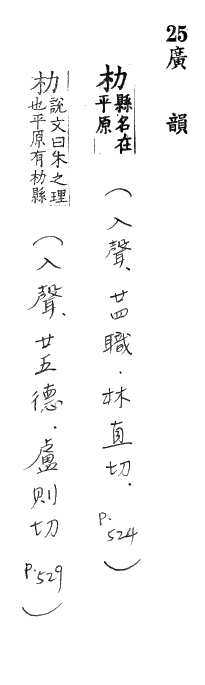 25廣韻
朸縣名在平原(入聲、廿四職.林直切.P.524)
朸說文曰朱之理也平原有朸縣(入聲、廿五德.盧則切P.529)